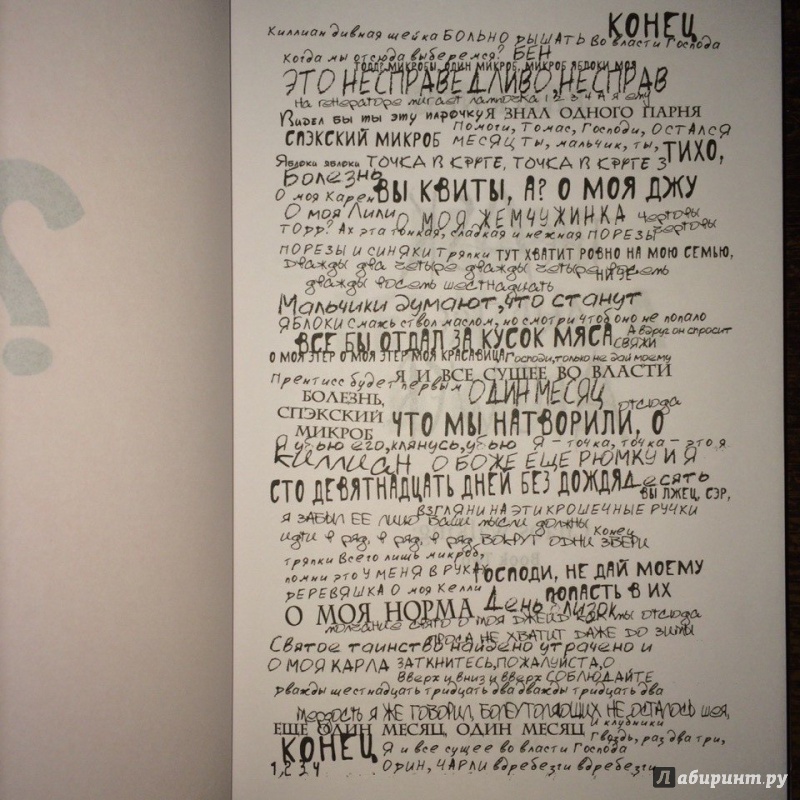 КОНЕЦ
Киллиан дивная шейка БОЛЬНО ДЫШАТЬ во власти Господа
Когда мы отсюда выберемся? БЕН
ТОДД МИКРОБЫ, ОДИН МИКРОБ, МИКРОБ ЯБЛОКИ МОЯ
ЭТО НЕСПРАВЕДЛИВО, НЕСПРАВ
На генераторе мигает лампочка 1 2 3 4 А я ему
Видел бы ты эту парочку Я ЗНАЛ ОДНОГО ПАРНЯ
Помоги, Томас, Господи, ОСТАЛСЯ
СПЭКСКИЙ МИКРОБ МЕСЯЦ ТЫ, мальчик, ты, ТИХО,
Яблоки яблоки ТОЧКА В КРУГЕ, ТОЧКА В КРУГЕ 3
Болезнь
О моя Карен ВЫ КВИТЫ, А? О МОЯ ДЖУ
О моя Лили О МОЯ ЖЕМЧУЖИНКА чертовы
ТОДД? Ах эта тонкая, сладкая и нежная ПОРЕЗЫ чертовы
ПОРЕЗЫ И СИНЯКИ Тряпки ТУТ ХВАТИТ РОВНО НА МОЮ СЕМЬЮ,
Дважды два четыре дважды четыре восемь НИЗЕ
дважды восемь шестнадцать
Мальчики думают, что станут
ЯБЛОКИ Смажь ствол маслом, но смотри чтоб оно не попало
ВСЕ БЫ ОТДАЛ ЗА КУСОК МЯСА А вдруг он спросит
СВЯЖИ
О МОЯ ЭТЕР О МОЯ ЭТЕР МОЯ КРАСАВИЦА Господи, только не дай моему
Прентисс будет первым Я И ВСЕ СУЩЕЕ ВО ВЛАСТИ
БОЛЕЗНЬ, ОДИН МЕСЯЦ отсюда
СПЭКСКИЙ МИКРОБ ЧТО МЫ НАТВОРИЛИ, О
Я убью его, клянусь, убью Я – точка, точка – это я
Киллиан О БОЖЕ ЕЩЕ РЮМКУ И Я
СТО ДЕВЯТНАДЦАТЬ ДНЕЙ БЕЗ ДОЖДЯ Десять
ВЫ ЛЖЕЦ, СЭР,
ВЗГЛЯНИ НА ЭТИ КРОШЕЧНЫЕ РУЧКИ
Я ЗАБЫЛ ЕЕ ЛИЦО Ваши мысли должны
идти в ряд, в ряд, в ряд ВОКРУГ ОДНИ ЗВЕРИ Конец
тряпки Всего лишь микроб,
помни это У МЕНЯ В РУКАХ ГОСПОДИ, НЕ ДАЙ МОЕМУ
ДЕРЕВЯШКА О моя Келли ПОПАСТЬ В ИХ
О МОЯ НОРМА День близок
О МОЯ ДЖЕЙД как мы отсюда
ПРОСА НЕ ХВАТИТ ДАЖЕ ДО ЗИМЫ
Святое таинство найдено утрачено и
О МОЯ КАРЛА ЗАТКНИТЕСЬ, ПОЖАЛУЙСТА, О
Вверх и вниз и вверх СОБЛЮДАЙТЕ
дважды шестнадцать тридцать два дважды тридцать два
твердость Я ЖЕ ГОВОРИЛ, БОЛЕУТОЛЯЮЩИХ НЕ ОСТАЛОСЬ шея,
ЕЩЕ ОДИН МЕСЯЦ, ОДИН МЕСЯЦ И клубники
Гвоздь, раз два три,
КОНЕЦ Я и все сущее во власти Господа
1, 2, 3, 4 ОДИН, ЧАРЛИ вдребезги вдребезги
Лабиринт.ру